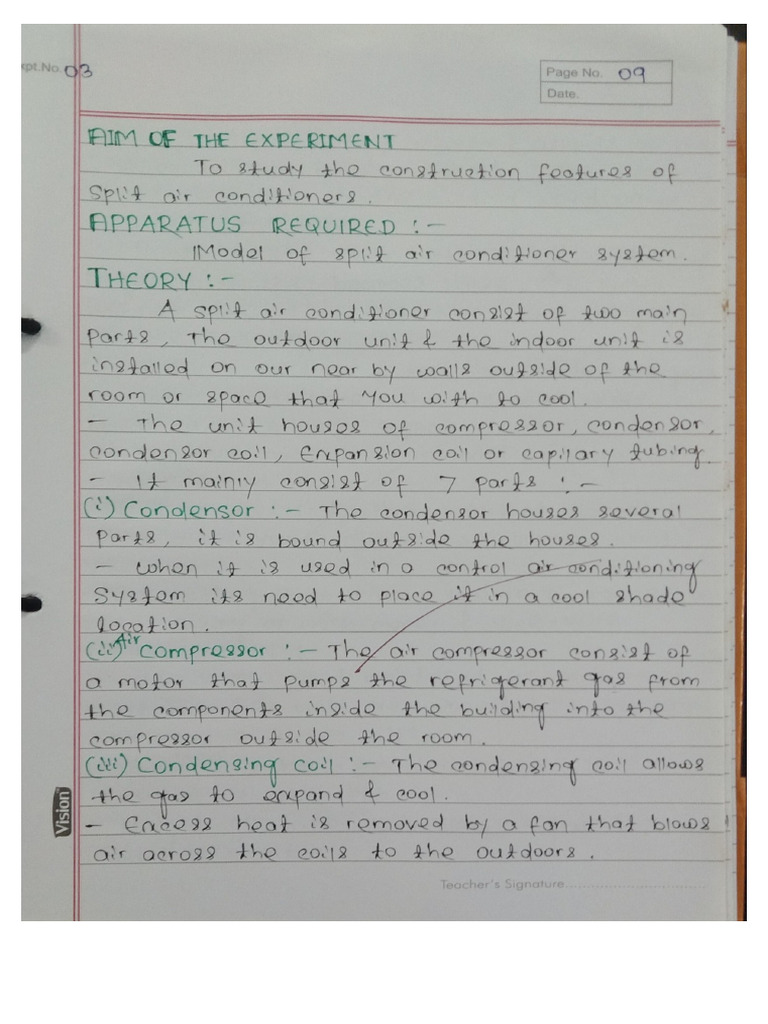 xpt.No. 03
Page No. 09
Date.
AIM OF THE EXPERIMENT
To study the construction features of
split air conditioners.
APPARATUS REQUIRED :-
Model of split air conditioner system.
THEORY :-
A split air conditioner consist of two main
parts, The outdoor unit & the indoor unit is
installed on our near by walls outside of the
room or space that you with to cool.
- The unit houses of compressor, condensor,
condensor coil, Expansion coil or capilary tubing.
- It mainly consist of 7 parts :-
(i) Condensor :- The condensor houses several
parts, it is bound outside the houses.
- when it is used in a control air conditioning
system its need to place it in a cool shade
location.
(ii) Air compressor :- The air compressor consist of
a motor that pumps the refrigerant gas from
the components inside the building into the
compressor outside the room.
(iii) Condensing coil :- The condensing coil allows
the gas to expand & cool.
- Excess heat is removed by a fan that blows
air across the coils to the outdoors.
Vision
Teacher's Signature